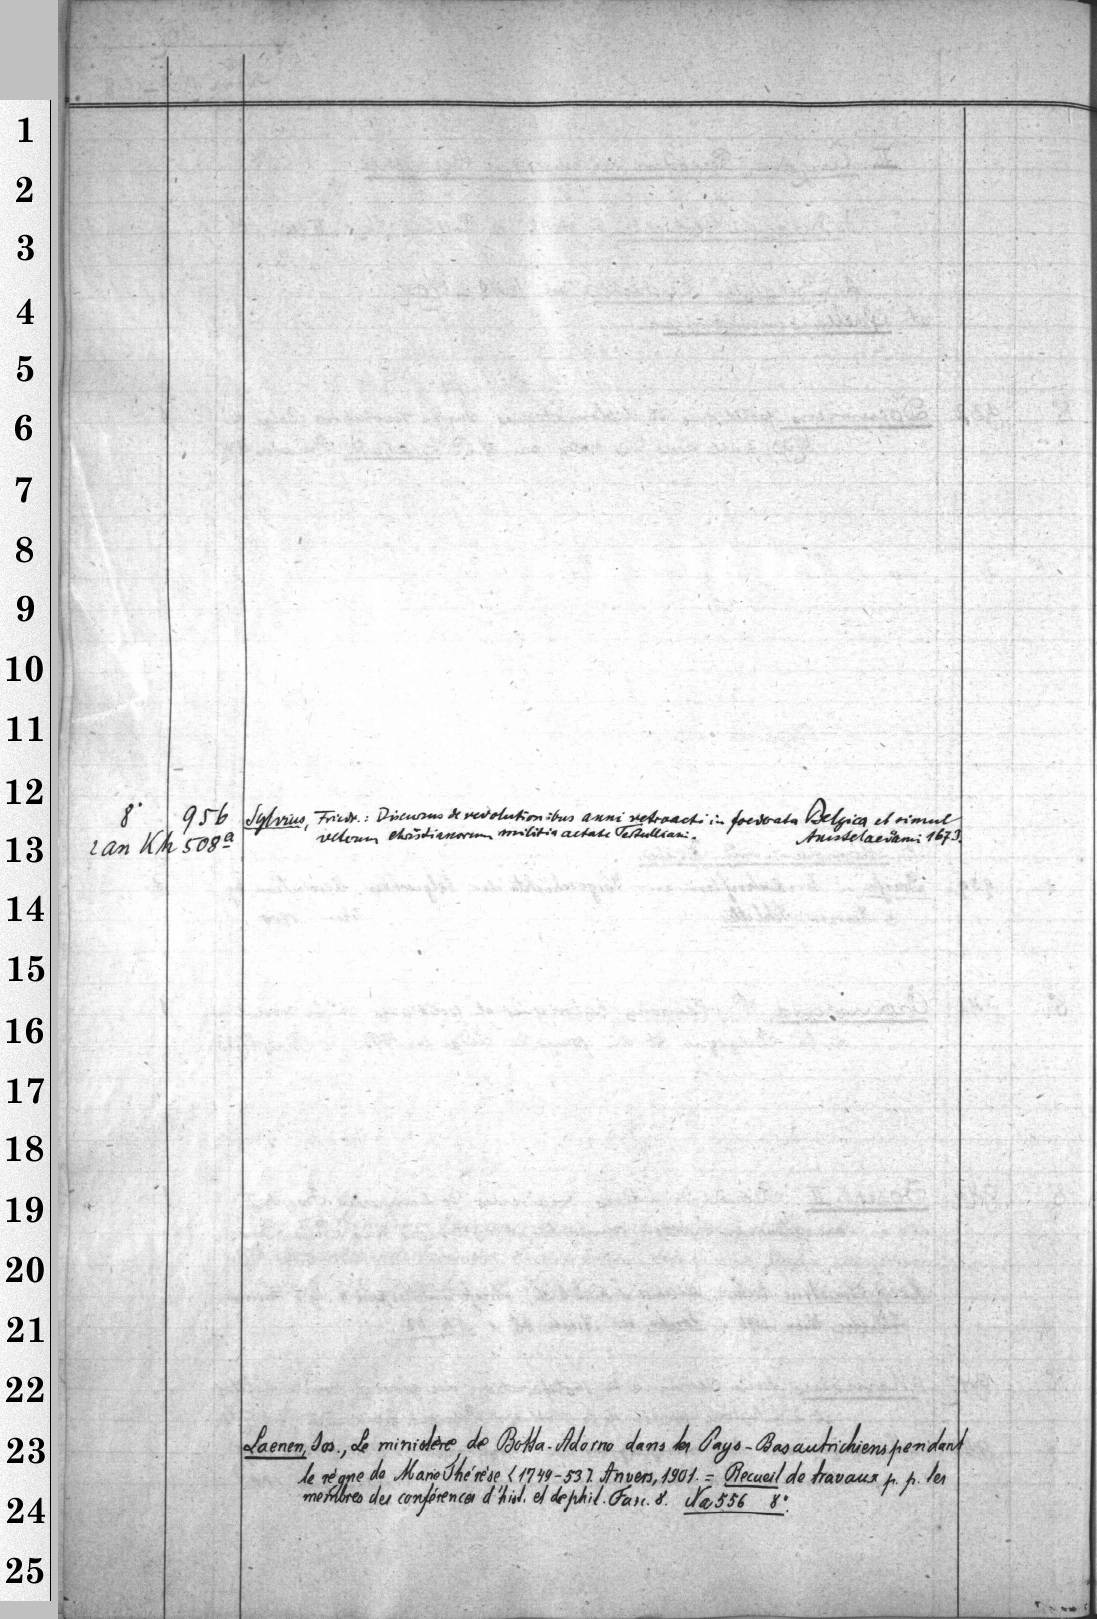 1
2
3
4
5
6
7
8
9
10
11
12
8° 956 Sylvius, Friedr.: Discursus de revolutionibus anni retroacti in foederata Belgica et simul
13
2 an Kh 508a veterum christianorum militia aetate Tertulliani. Amstelaedami 1673.
14
15
16
17
18
19
20
21
22
23
Laenen, Jos., Le ministère de Botta-Adorno dans les Pays-Bas autrichiens pendant
le règne de Marie Thérèse (1749-53). Anvers, 1901. = Recueil de travaux p. p. les
24
membres des conférences d'hist. et de phil. Fasc. 8. Na 556 8°.
25